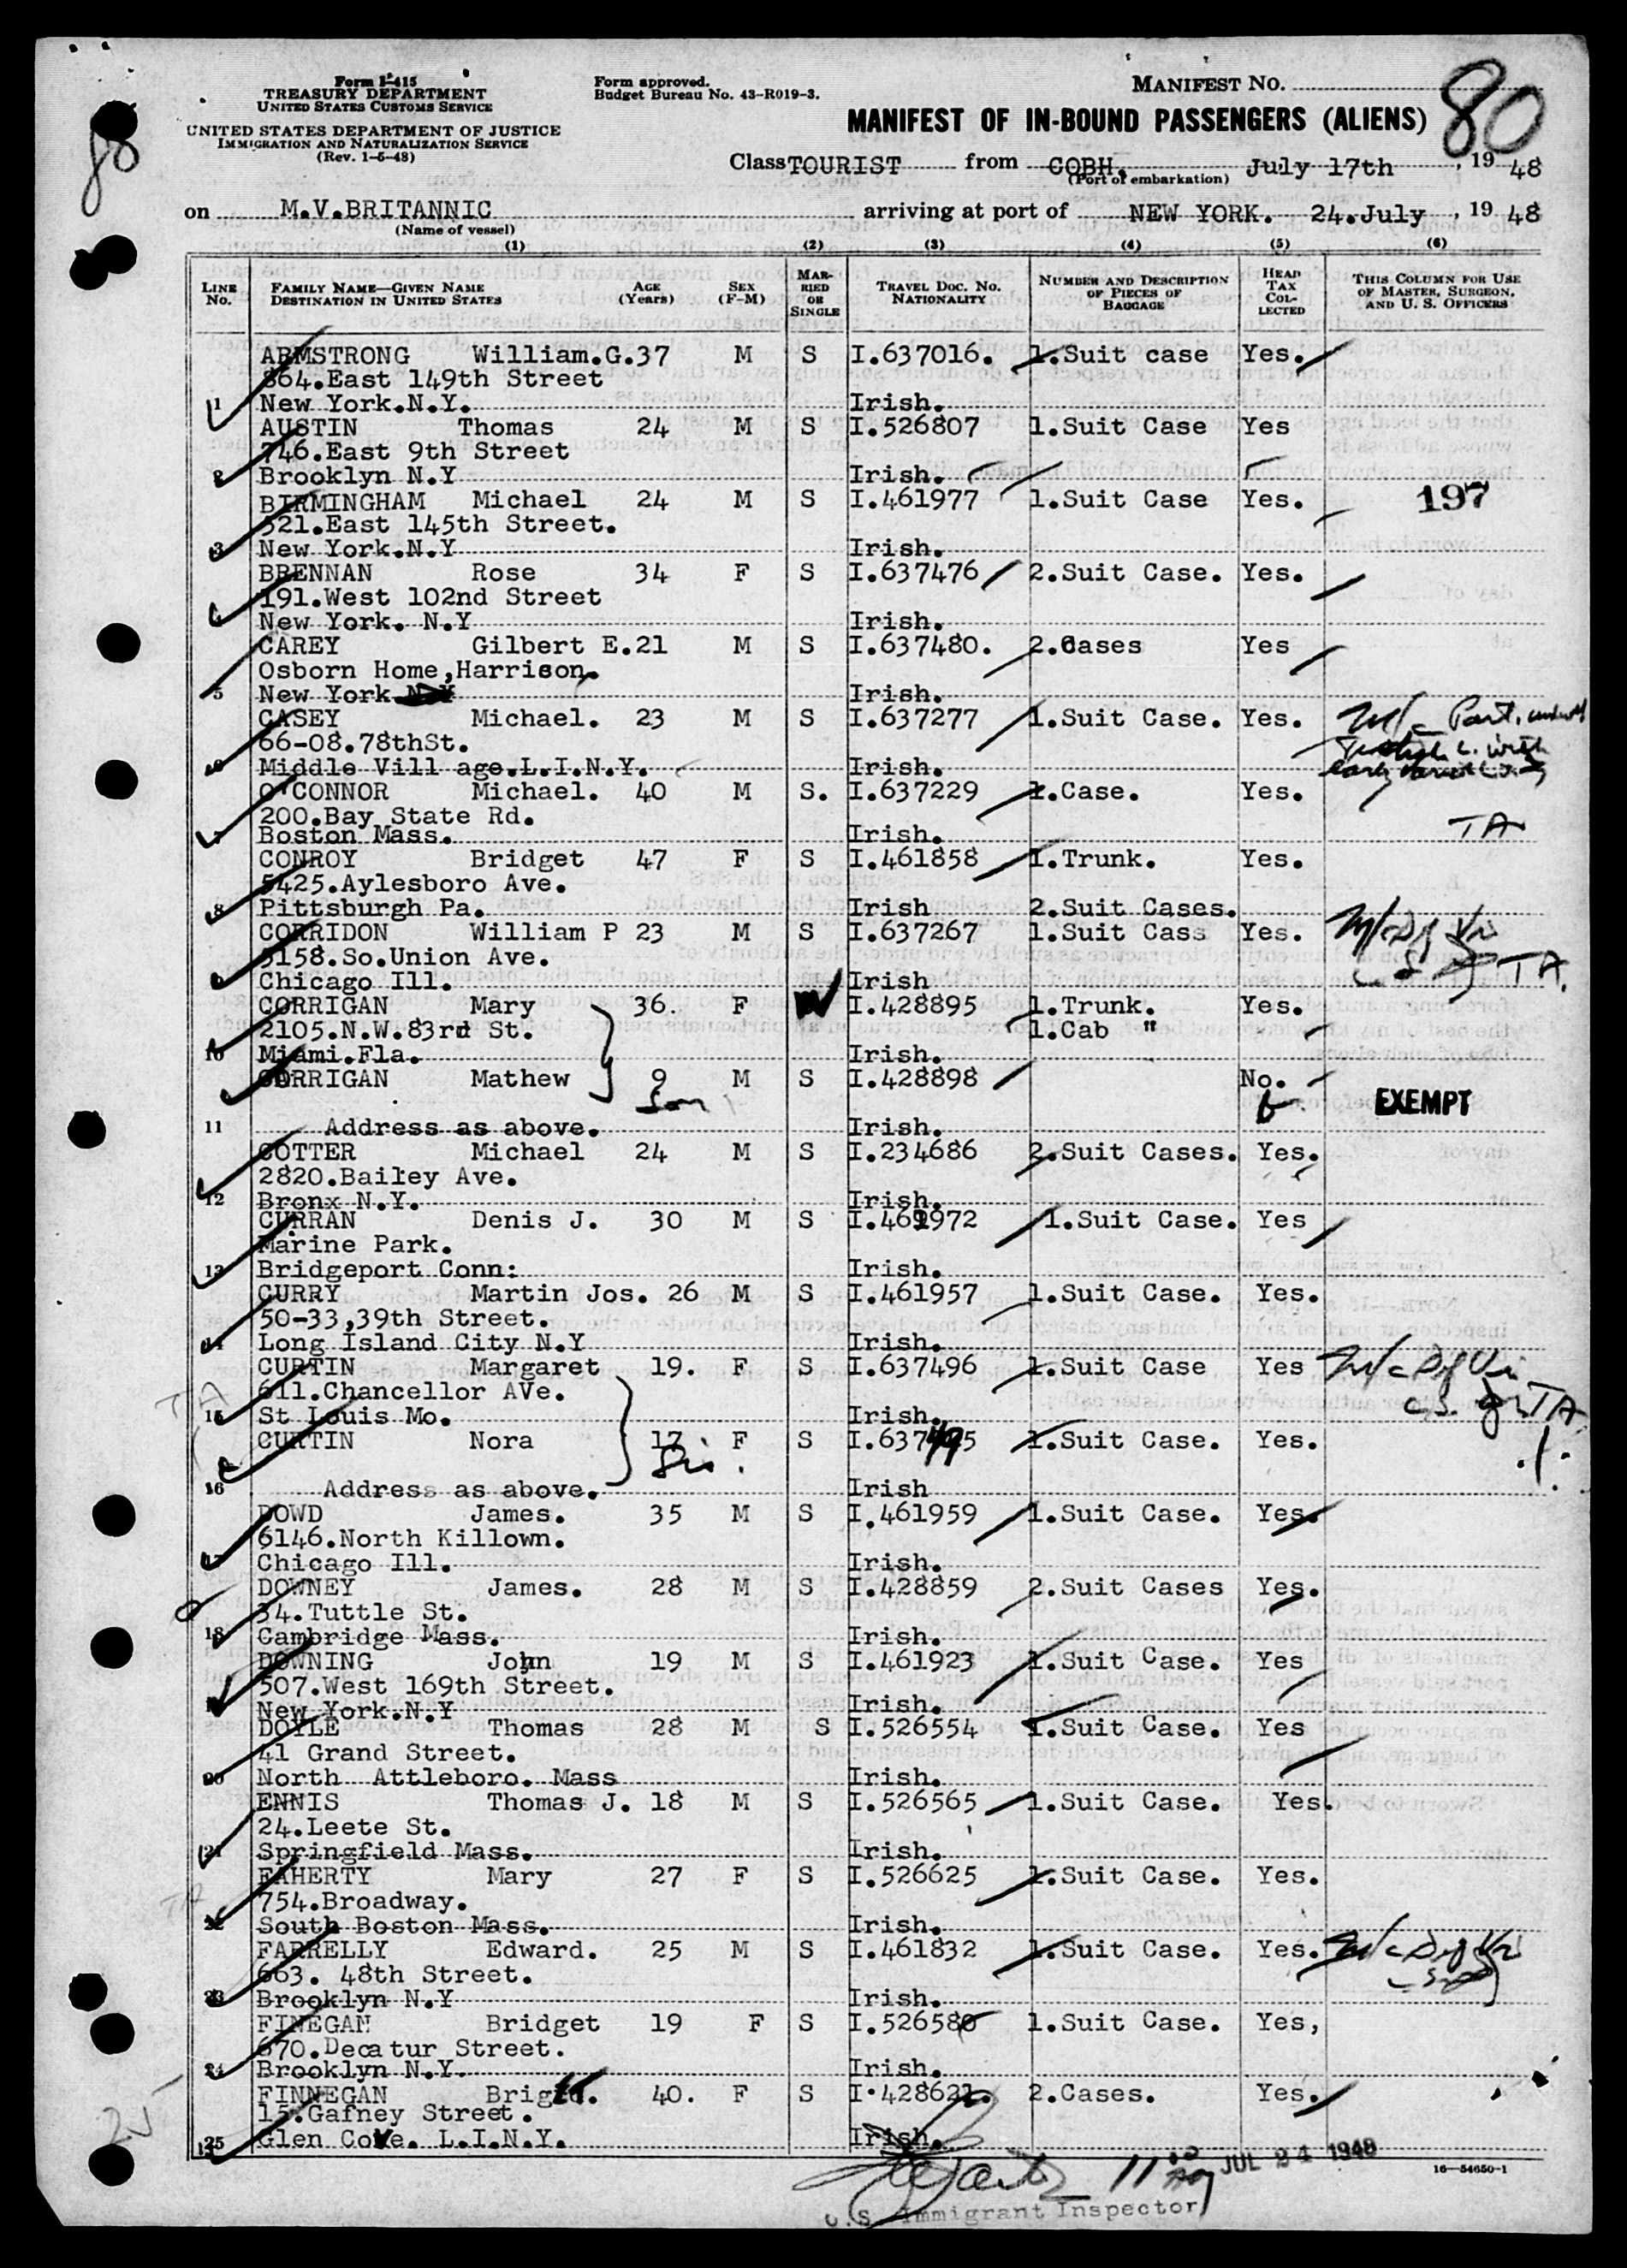 Form I-415
TREASURY DEPARTMENT
UNITED STATES CUSTOMS SERVICE
UNITED STATES DEPARTMENT OF JUSTICE
IMMIGRATION AND NATURALIZATION SERVICE
(Rev. 1-5-48)
Form approved.
Budget Bureau No. 43-R019-3.
MANIFEST NO.
80
88
MANIFEST OF IN-BOUND PASSENGERS (ALIENS)
Class TOURIST from COBH. July 17th, 19 48
(Port of embarkation)
on M.V.BRITANNIC arriving at port of NEW YORK. 24.July, 19 48
(Name of vessel)
(1) (2) (3) (4) (5) (6)
LINE No. FAMILY NAME—GIVEN NAME DESTINATION IN UNITED STATES AGE (Years) SEX (F-M) MARRIED OR SINGLE TRAVEL DOC. NO. NATIONALITY NUMBER AND DESCRIPTION OF PIECES OF BAGGAGE HEAD TAX COLLECTED THIS COLUMN FOR USE OF MASTER, SURGEON, AND U. S. OFFICERS
ARMSTRONG William.G. 37 M S I.637016. 1.Suit case Yes.
864.East 149th Street
1 New York.N.Y. Irish.
AUSTIN Thomas 24 M S I.526807 1.Suit Case Yes
746.East 9th Street
2 Brooklyn N.Y Irish.
BIRMINGHAM Michael 24 M S I.461977 1.Suit Case Yes. 197
521.East 145th Street.
3 New York.N.Y Irish.
BRENNAN Rose 34 F S I.637476 2.Suit Case. Yes.
191.West 102nd Street
New York. N.Y Irish.
CAREY Gilbert E. 21 M S I.637480. 2.Cases Yes
Osborn Home,Harrison.
5 New York Irish.
CASEY Michael. 23 M S I.637277 1.Suit Case. Yes. Part.
66-08.78thSt.
Middle Vill age.L.I.N.Y. Irish.
O'CONNOR Michael. 40 M S. I.637229 1.Case. Yes.
200.Bay State Rd. TA
7 Boston Mass. Irish.
CONROY Bridget 47 F S I.461858 1.Trunk. Yes.
5425.Aylesboro Ave.
8 Pittsburgh Pa. Irish 2.Suit Cases.
CORRIDON William P 23 M S I.637267 1.Suit Cass Yes.
5158.So.Union Ave. TA.
Chicago Ill. Irish
CORRIGAN Mary 36. F M I.428895 1.Trunk. Yes.
2105.N.W.83rd St. 1.Cab "
10 Miami.Fla. Irish.
CORRIGAN Mathew 9 M S I.428898 No.
Son EXEMPT
11 Address as above. Irish.
COTTER Michael 24 M S I.234686 2.Suit Cases. Yes.
2820.Bailey Ave.
12 Bronx N.Y. Irish.
CURRAN Denis J. 30 M S I.461972 1.Suit Case. Yes
Marine Park.
13 Bridgeport Conn: Irish.
CURRY Martin Jos. 26 M S I.461957 1.Suit Case. Yes.
50-33,39th Street.
14 Long Island City N.Y Irish.
CURTIN Margaret 19. F S I.637496 1.Suit Case Yes
TA 611.Chancellor AVe. TA
15 St Louis Mo. Irish.
CURTIN Nora 17 F S I.637495 1.Suit Case. Yes.
Sis.
16 Address as above. Irish
DOWD James. 35 M S I.461959 1.Suit Case. Yes.
6146.North Killown.
17 Chicago Ill. Irish.
DOWNEY James. 28 M S I.428859 2.Suit Cases Yes.
34.Tuttle St.
18 Cambridge Mass. Irish.
DOWNING John 19 M S I.461923 1.Suit Case. Yes
507.West 169th Street.
New York.N.Y Irish.
DOYLE Thomas 28 M S I.526554 1.Suit Case. Yes
41 Grand Street.
20 North Attleboro. Mass Irish.
ENNIS Thomas J. 18 M S I.526565 1.Suit Case. Yes.
24.Leete St.
21 Springfield Mass. Irish.
FAHERTY Mary 27 F S I.526625 1.Suit Case. Yes.
TA 754.Broadway.
22 South Boston Mass. Irish.
FARRELLY Edward. 25 M S I.461832 1.Suit Case. Yes.
663. 48th Street.
23 Brooklyn N.Y Irish.
FINEGAN Bridget 19 F S I.526580 1.Suit Case. Yes,
670.Decatur Street.
24 Brooklyn N.Y. Irish.
FINNEGAN Brigid. 40. F S I.428621. 2.Cases. Yes.
15.Gafney Street.
25 Glen Cove. L.I.N.Y. Irish.
25
JUL 24 1948
16—54650-1
U.S. Immigrant Inspector